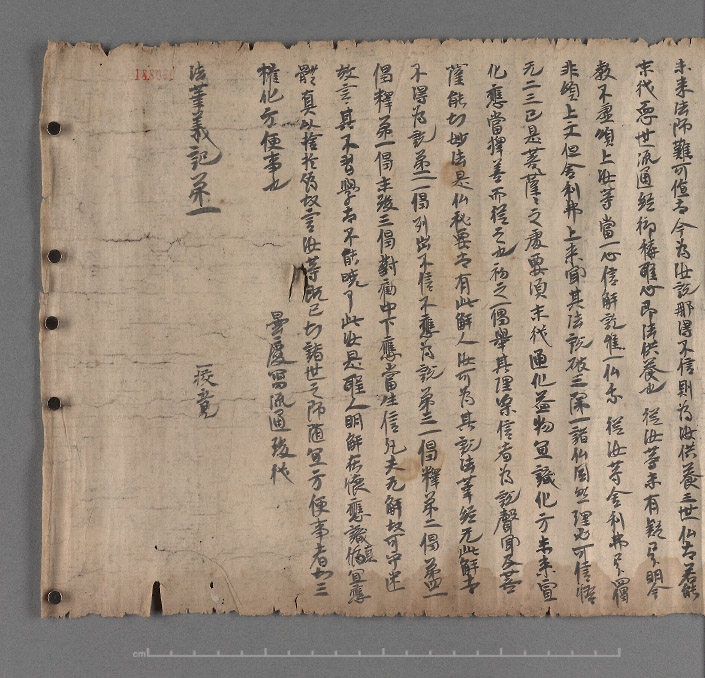 未来法师難可值也今為汝說那得不信則為汝供養三世仏也若能
末代惡世流通經衛護心即法供養也 從汝等未有疑身明今
教不虛頌上汝等當一心信解說惟一仏乘 從汝等舍利弗身
非頌上文但舍利弗上来聞其法說破三除一諸仏同然理必可信
无二三已是菩薩之處要須末代通化益物宜識化方未来宣
化應當擇善而從之也初之一偈舉其理深信者為說聲聞及菩
薩能知妙法是仏秘要者有此解人汝可為其說法華經无此解者
不得為說第二一偈列出不信不應為說第三一偈釋第二偈第四一
偈釋第一偈末後三偈對勸中下應當生信凡夫无解故可守迷
故言其不習學者不能曉了此汝是聖人明解在懷應識宜應
體真以捨於偽故言汝等既已知諸世之师隨宜方便事者知三
權化方便事也
曇慶寫流通後代
法華義記第一
校竟
cm